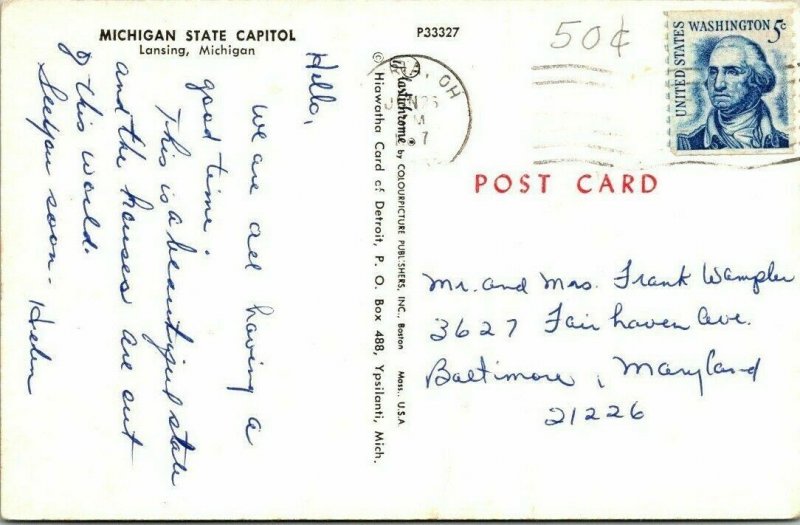 MICHIGAN STATE CAPITOL
Lansing, Michigan
P33327
50¢
UNITED STATES
WASHINGTON 5c
OH
JUN 26
M
7
Hello,
we are all having a
good time.
This is a beautiful state
and the houses are out
of this world.
See you soon -
Helen
Plastichrome® by COLOURPICTURE PUBLISHERS, INC., Boston Mass., U.S.A
© Hiawatha Card of Detroit, P. O. Box 488, Ypsilanti, Mich.
POST CARD
Mr. and Mrs. Frank Wampler
3627 Fairhaven Ave.
Baltimore, Maryland
21226